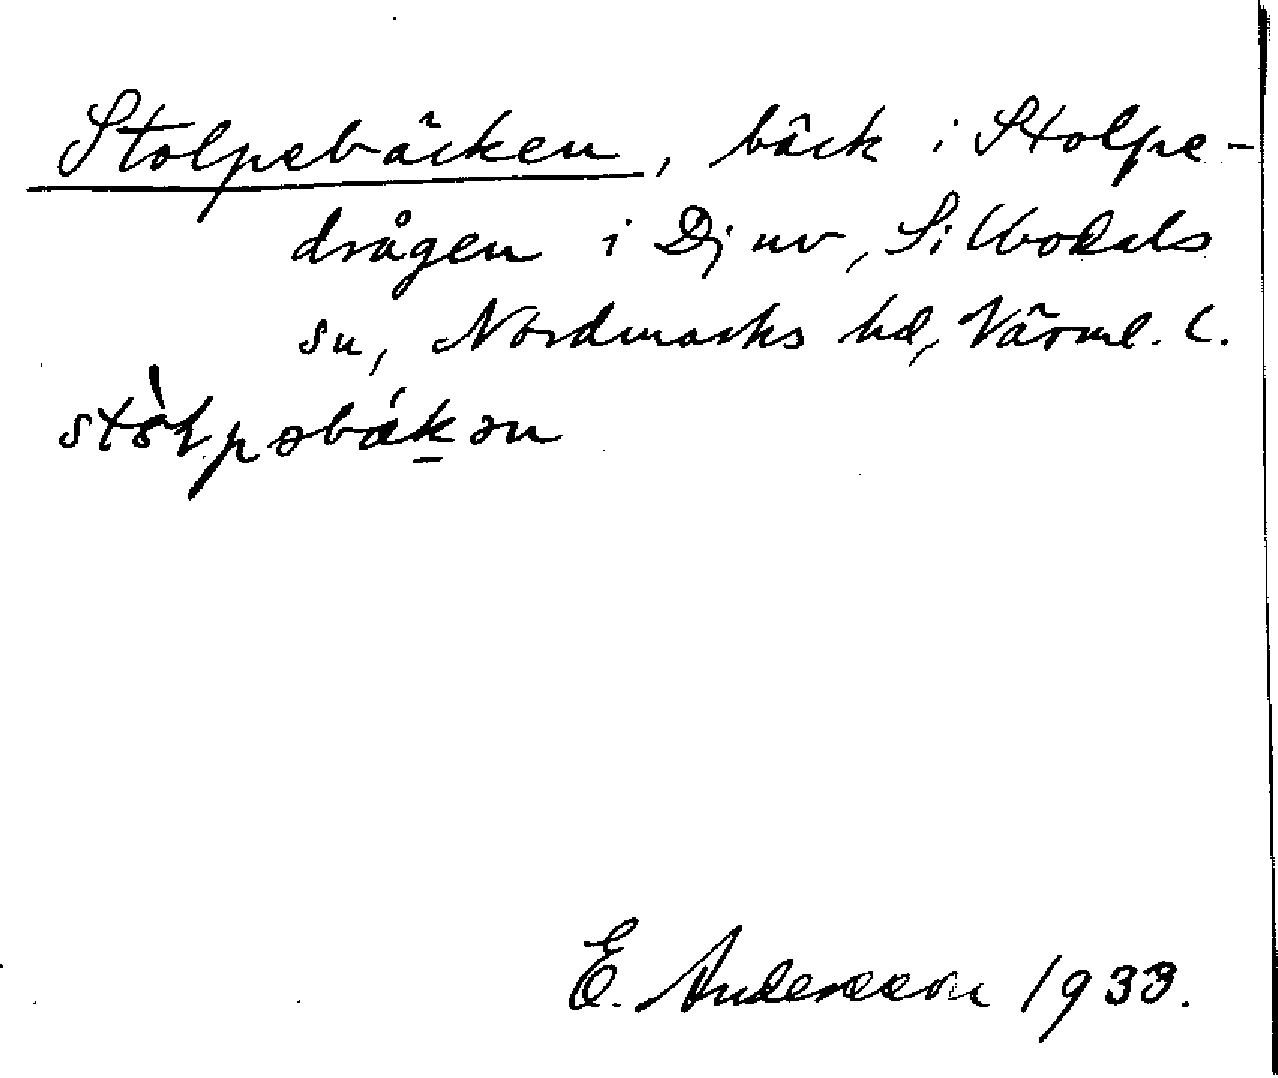 Stolpebäcken, bäck i Stolpe-
drågen i Djuv, Silbodals
sn, Nordmarks hd, Värml. l.
stòlpəbákən
E. Andersson 1933.